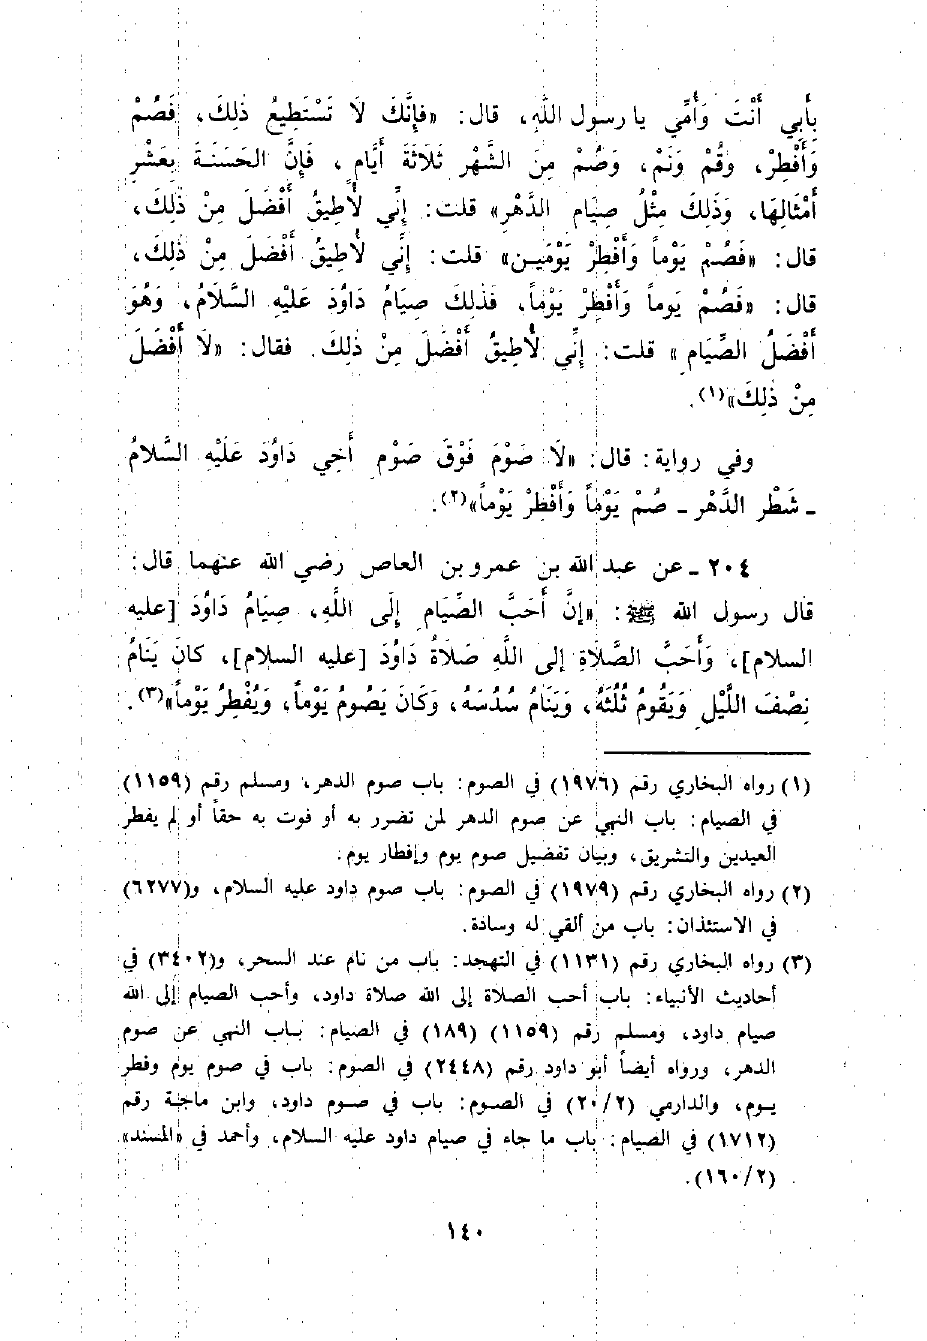 بِأَبِي أَنْتَ وَأُمِّي يا رسول اللَّهِ، قال: «فَإِنَّكَ لَا تَسْتَطِيعُ ذٰلِكَ، فَصُمْ
وَأَفْطِرْ، وَقُمْ وَنَمْ، وَصُمْ مِنَ الشَّهْرِ ثَلَاثَةَ أَيَّامٍ، فَإِنَّ الحَسَنَةَ بِعَشْرِ
أَمْثَالِهَا، وَذٰلِكَ مِثْلُ صِيَامِ الدَّهْرِ» قلت: إِنِّي لأُطِيقُ أَفْضَلَ مِنْ ذٰلِكَ،
قال: «فَصُمْ يَوْماً وَأَفْطِرْ يَوْمَيـن» قلت: إِنِّي لأُطِيقُ أَفْضَلَ مِنْ ذٰلِكَ،
قال: «فَصُمْ يَوماً وَأَفْطِرْ يَوْماً، فَذٰلِكَ صِيَامُ دَاوُدَ عَلَيْهِ السَّلَامُ، وَهُوَ
أَفْضَلُ الصِّيَامِ» قلت: إِنِّي لأُطِيقُ أَفْضَلَ مِنْ ذٰلِكَ. فقال: «لَا أَفْضَلَ
مِنْ ذٰلِكَ»(١).
وفي رواية: قال: «لَا صَوْمَ فَوْقَ صَوْمِ أَخِي دَاوُدَ عَلَيْهِ السَّلَامُ
ـ شَطْرِ الدَّهْرِ ـ صُمْ يَوْماً وَأَفْطِرْ يَوْماً»(٢).
٢٠٤ ـ عن عبد الله بن عمرو بن العاص رضي الله عنهما قال:
قال رسول الله ﷺ: «إِنَّ أَحَبَّ الصِّيَامِ إِلَى اللَّهِ، صِيَامُ دَاوُدَ [عليه
السلام]، وَأَحَبَّ الصَّلَاةِ إِلى اللَّهِ صَلَاةُ دَاوُدَ [عليه السلام]، كانَ يَنَامُ
نِصْفَ اللَّيْلِ وَيَقُومُ ثُلُثَهُ، وَيَنَامُ سُدُسَهُ، وَكَانَ يَصُومُ يَوْماً، وَيُفْطِرُ يَوْماً»(٣).
(١) رواه البخاري رقم (١٩٧٦) في الصوم: باب صوم الدهر، ومسلم رقم (١١٥٩)
في الصيام: باب النهي عن صوم الدهر لمن تضرر به أو فوت به حقاً أو لم يفطر
العيدين والتشريق، وبيان تفضيل صوم يوم وإفطار يوم.
(٢) رواه البخاري رقم (١٩٧٩) في الصوم: باب صوم داود عليه السلام، و(٦٢٧٧)
في الاستئذان: باب من ألقي له وسادة.
(٣) رواه البخاري رقم (١١٣١) في التهجد: باب من نام عند السحر، و(٣٤٠٢) في
أحاديث الأنبياء: باب أحب الصلاة إلى الله صلاة داود، وأحب الصيام إلى الله
صيام داود، ومسلم رقم (١١٥٩) (١٨٩) في الصيام: بـاب النهي عن صوم
الدهر، ورواه أيضاً أبو داود رقم (٢٤٤٨) في الصوم: باب في صوم يوم وفطر
يـوم، والدارمي (٢٠/٢) في الصـوم: باب في صـوم داود، وابن ماجة رقم
(١٧١٢) في الصيام: باب ما جاء في صيام داود عليه السلام، وأحمد في «المسند»
(١٦٠/٢).
١٤٠